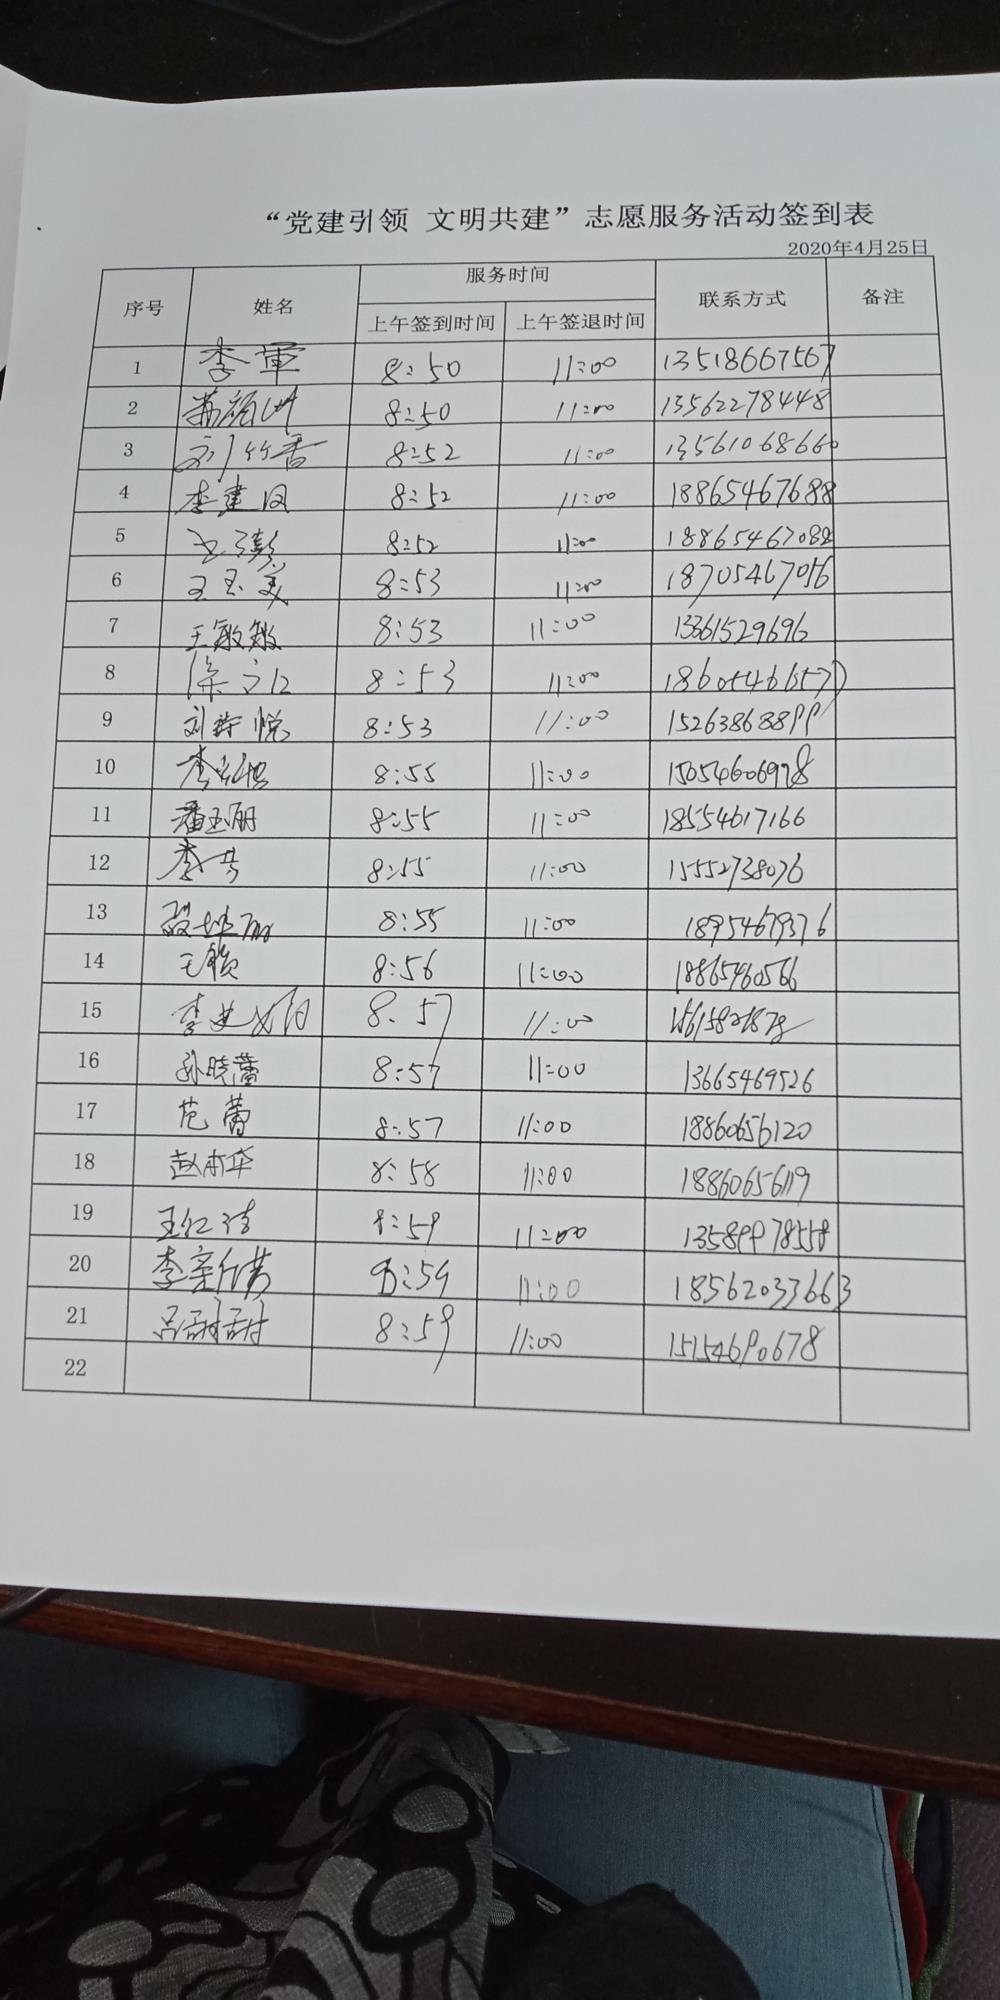 “党建引领 文明共建”志愿服务活动签到表
2020年4月25日
序号 姓名 服务时间 联系方式 备注
上午签到时间 上午签退时间
1 李軍 8:50 11:00 13518667567
2 8:50 11:00 13562278448
3 刘竹香 8:52 11:00 13561068660
4 李建国 8:52 11:00 18865467688
5 8:52 11:00 18865467088
6 王玉美 8:53 11:00 18705467056
7 王敏敏 8:53 11:00 13361529696
8 8:53 11:00
9 刘 悦 8:53 11:00 15263868899
10 李 8:55 11:00 15054606978
11 潘玉丽 8:55 11:00 18554617166
12 李 8:55 11:00 15552738076
13 8:55 11:00 18954679376
14 王 8:56 11:00 18865460566
15 李 8:57 11:00
16 孙晓蕾 8:57 11:00 13665469526
17 范蕾 8:57 11:00 18860656120
18 赵 华 8:58 11:00 18860656119
19 王红 8:59 11:00 13589978558
20 李 8:59 11:00 18562033663
21 吕甜甜 8:59 11:00 15154690678
22